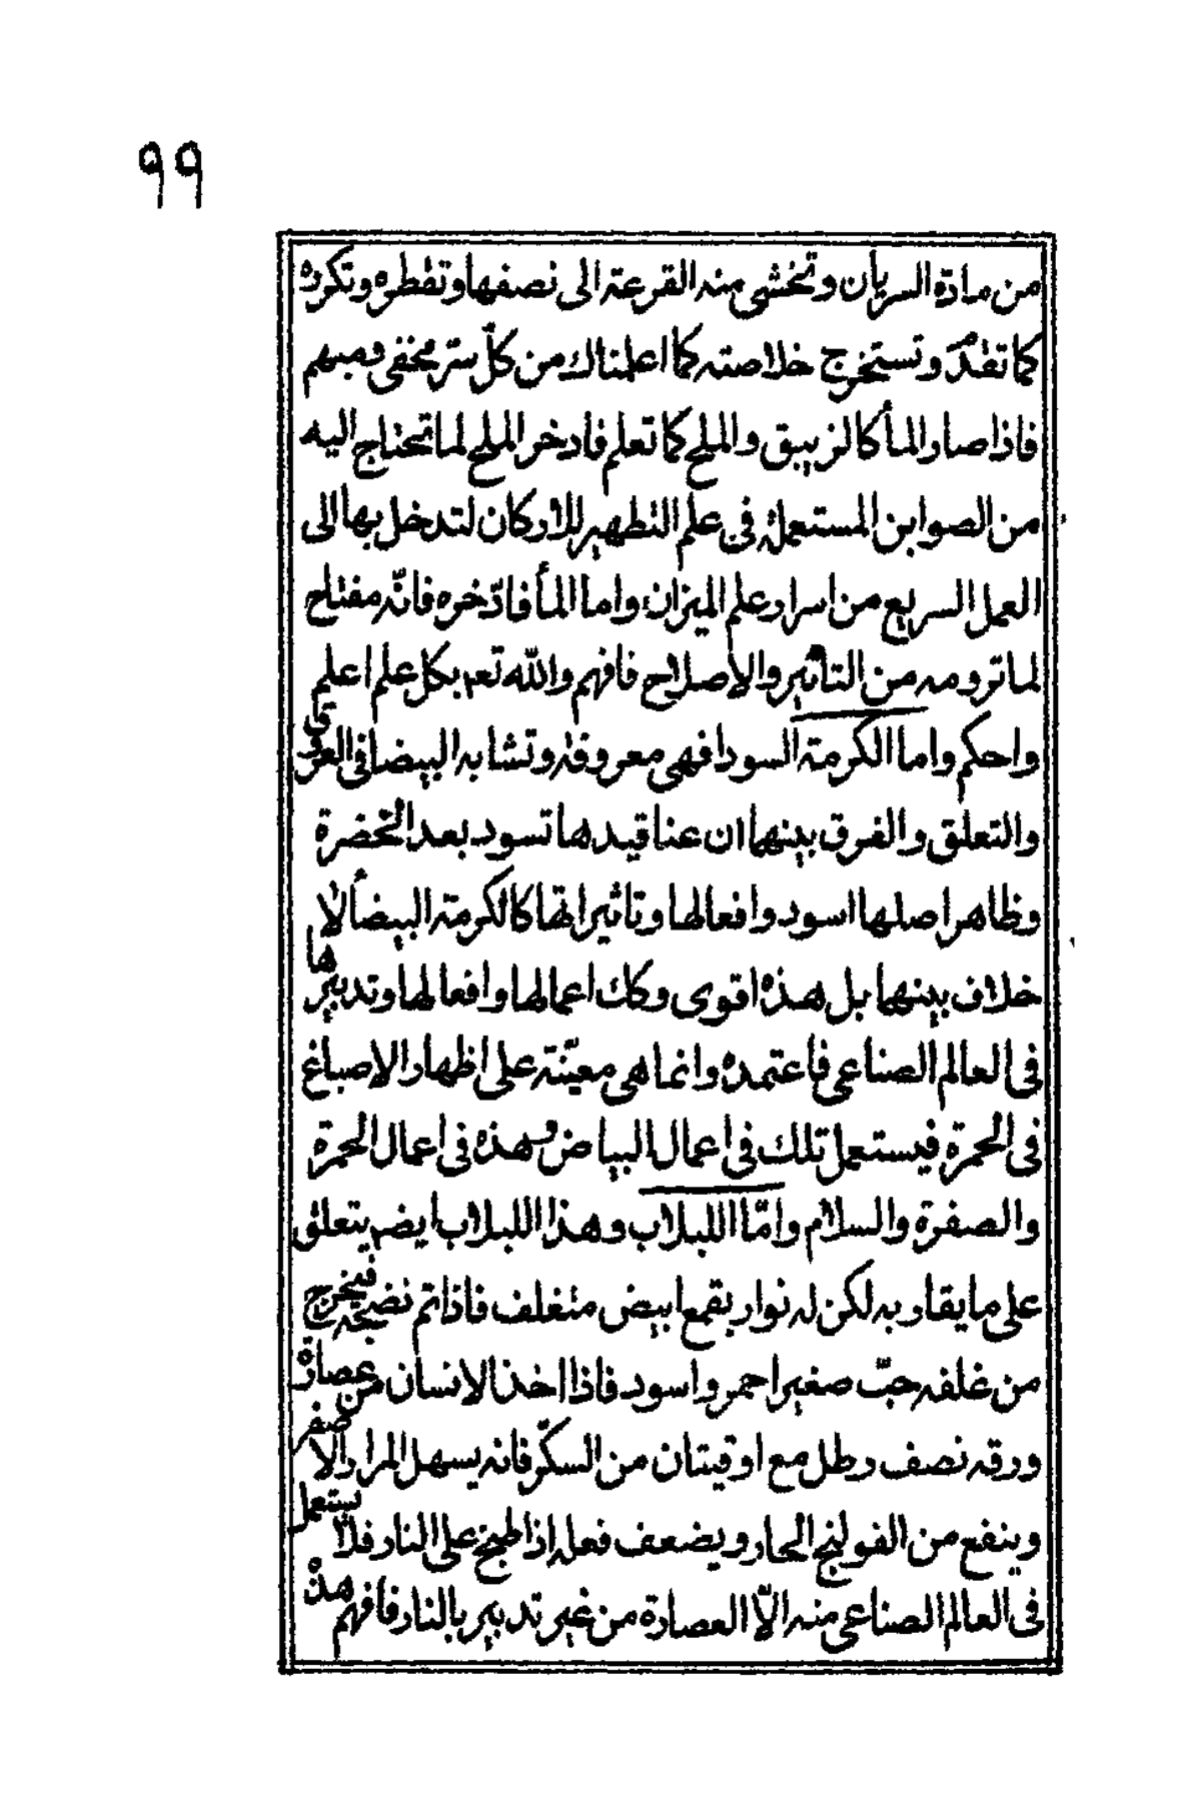 ٩٩
من مادة السريان وتحشى منه القرعة الى نصفها وتقطره وتكرره
كما تقدم وتستخرج خلاصته كما اعلمناك من كلّ سرّ مخفى ومبهم
فاذا صار المأ كالزيبق والملح كما تعلم فادخر الملح لما تحتاج اليه
من الصوابن المستعملة فى علم التطهير للاركان لتدخل بها الى
العمل السريع من اسرار علم الميزان واما المأ فادّخره فانّه مفتاح
لما ترومه من التأثير والأصلاح فافهم والله تعم بكل علم اعلم
واحكم واما الكرمة السودا فهى معروفة وتشابه البيضا فى العروق
والتعلق والفرق بينهما ان عناقيدها تسود بعد الخضرة
وظاهر اصلها اسود وافعالها وتاثيراتها كالكرمة البيضأ لا
خلاف بينهما بل هذه اقوى وكك اعمالها وافعالها وتدبيرها
فى العالم الصناعى فاعتمده وانما هى معيّنة على اظهار الاصباغ
فى الحمرة فيستعمل تلك فى اعمال البياض وهذه فى اعمال الحمرة
والصفرة والسلام وامّا اللبلاب وهذا اللبلاب ايضم يتعلق
على ما يقاربه لكن له نوار بقمع ابيض متغلف فاذا تم نضجه فيخرج
من غلفه حبّ صغير احمر واسود فاذا اخذ الانسان من عصارة
ورقه نصف رطل مع اوقيتان من السكّر فانه يسهل المرار الاصفر
وينفع من القولنج الحار ويضعف فعله اذا طبخ على النار فلا يستعمل
فى العالم الصناعى منه الّا العصارة من غير تدبير بالنار فافهم هذه